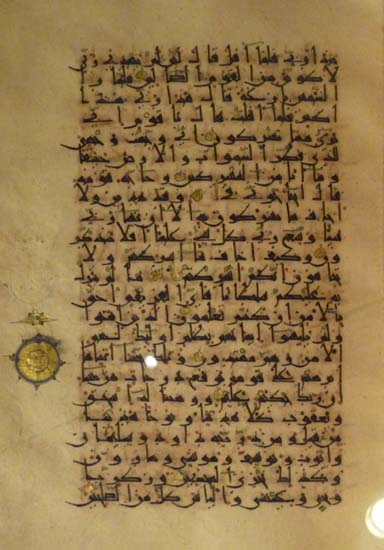 هذا ربي فلما أفل قال لئن لم يهدني ربي
لأكونن من القوم الضالين فلما رأى
الشمس بازغة قال هذا ربي هذا
أكبر فلما أفلت قال يا قوم إني
بريء مما تشركون إني وجهت وجهي
للذي فطر السموات والأرض حنيفا
وما أنا من المشركين وحاجه قومه
قال أتحاجوني في الله وقد هدان ولا
أخاف ما تشركون به إلا أن يشاء ربي
شيئا وسع ربي كل شيء علما أفلا تتذكر
ون وكيف أخاف ما أشركتم ولا
تخافون أنكم أشركتم بالله ما لم ينزل
به عليكم سلطانا فأي الفريقين أحق
بالأمن إن كنتم تعلمون الذين آمنوا
ولم يلبسوا إيمانهم بظلم أولئك لهم
الأمن وهم مهتدون وتلك حجتنا آتيناها
إبراهيم على قومه نرفع درجات من نشاء
إن ربك حكيم عليم ووهبنا له إسحق
ويعقوب كلا هدينا ونوحا هدينا
من قبل ومن ذريته داود وسليمان
وأيوب ويوسف وموسى وهارون
وكذلك نجزي المحسنين وزكريا
ويحيى وعيسى وإلياس كل من الصالحين